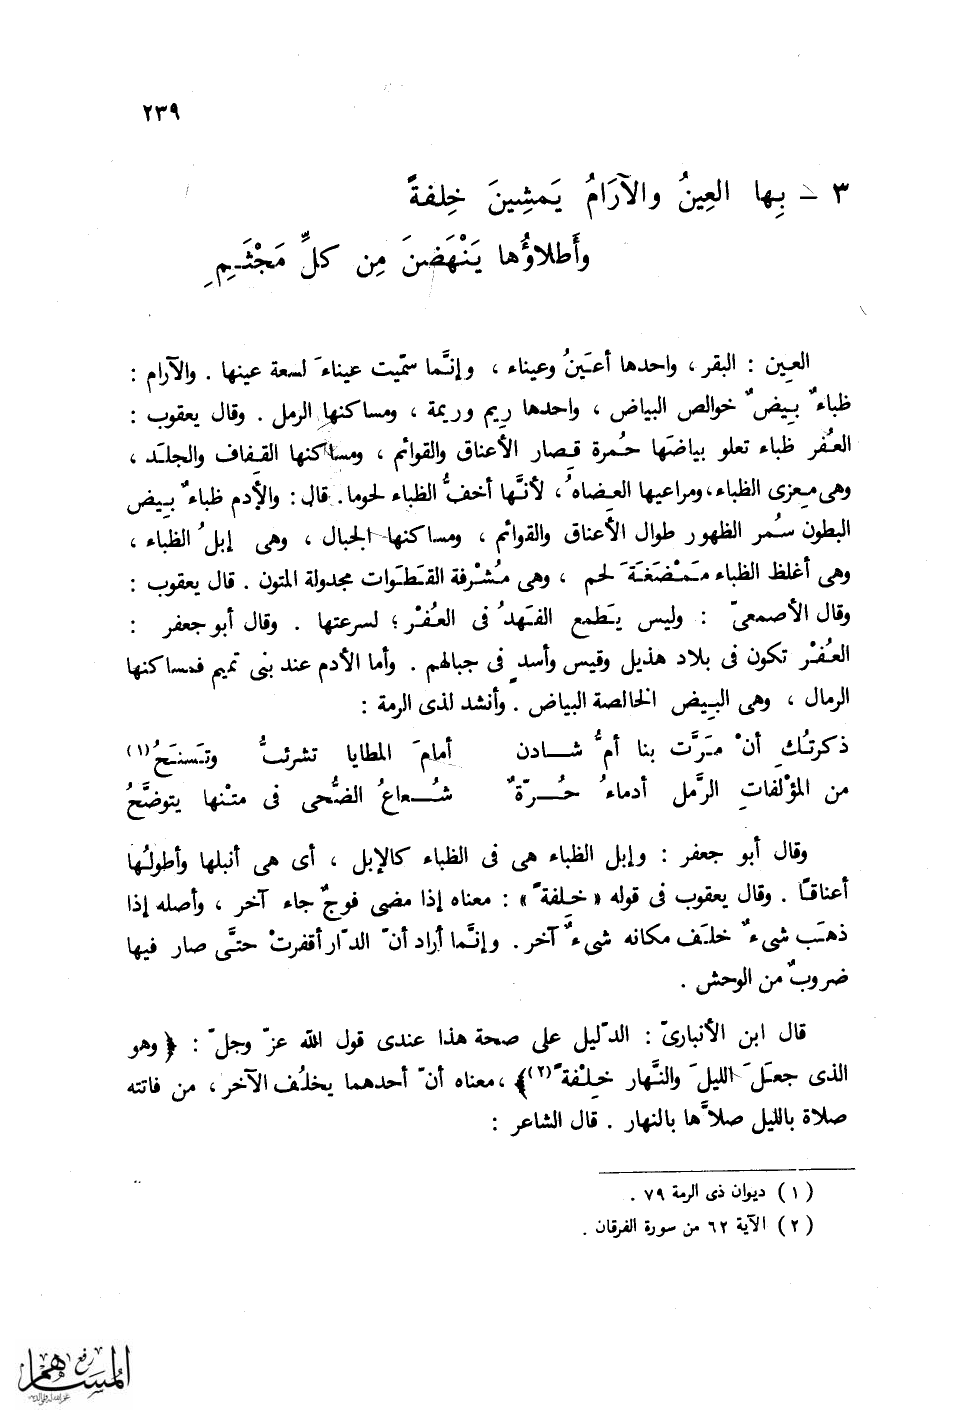 ٢٣٩
٣ – بِها العِينُ والآرَامُ يَمشِينَ خِلفةً
وأَطلاؤُها يَنْهَضنَ مِن كلِّ مَجْثَـمِ
العِين : البقر ، واحدها أعيَنُ وعيناء ، وإنَّما سمّيت عيناءَ لسعة عينها . والآرام :
ظباءٌ بِيضٌ خوالص البياض ، واحدها رِيم وريمة ، ومساكنها الرمل . وقال يعقوب :
العُفر ظباء تعلو بياضَها حُمرة قِصار الأعناق والقوائم ، ومساكنها القفاف والجلَد ،
وهى مِعزى الظباء، ومراعيها العِضاهُ ، لأنَّها أخفُّ الظباء لحوما. قال : والإدم ظباءٌ بِيض
البطون سُمر الظهور طوال الأعناق والقوائم ، ومساكنها الجبال ، وهى إبلُ الظباء ،
وهى أغلظ الظباء مَمْضَغَةَ لحم ، وهى مُشْرفة القَطَوات مجدولة المتون . قال يعقوب :
وقال الأصمعىّ : وليس يَطمع الفَهدُ فى العُفْر ؛ لسرعتها . وقال أبو جعفر :
العُفْر تكون فى بلاد هذيل وقيس وأسد فى جبالهم . وأما الأدم عند بنى تميم فمساكنها
الرمال ، وهى البِيض الخالصة البياض . وأنشد لذى الرمة :
ذكرتُكِ أنْ مَرَّت بنا أمُّ شـــادن أمامَ المطايا تشرئبُّ وتَسنَحُ(١)
من المؤْلفاتِ الرَّمل أدماءُ حُـــرّةٌ شُــعاعُ الضُّحى فى متْنها يتوضَّحُ
وقال أبو جعفر : وإبل الظباء هى فى الظباء كالإبل ، أى هى أنبلها وأطولُها
أعناقًا . وقال يعقوب فى قوله « خِلفةً » : معناه إذا مضى فوجٌ جاء آخر ، وأصله إذا
ذهَب شىءٌ خلَف مكانه شىءٌ آخر . وإنَّما أراد أنّ الدّار أقفرتْ حتَّى صار فيها
ضروبٌ من الوحش .
قال ابن الأنبارىّ : الدّليل على صحة هذا عندى قول الله عزّ وجلّ : ﴿ وهو
الذى جعلَ الليلَ والنَّهار خِلْفةً(٢)﴾ ، معناه أنّ أحدهما يخلُف الآخر ، من فاتته
صلاة بالليل صلاَّها بالنهار . قال الشاعر :
( ١ ) ديوان ذى الرمة ٧٩ .
( ٢ ) الآية ٦٢ من سورة الفرقان .